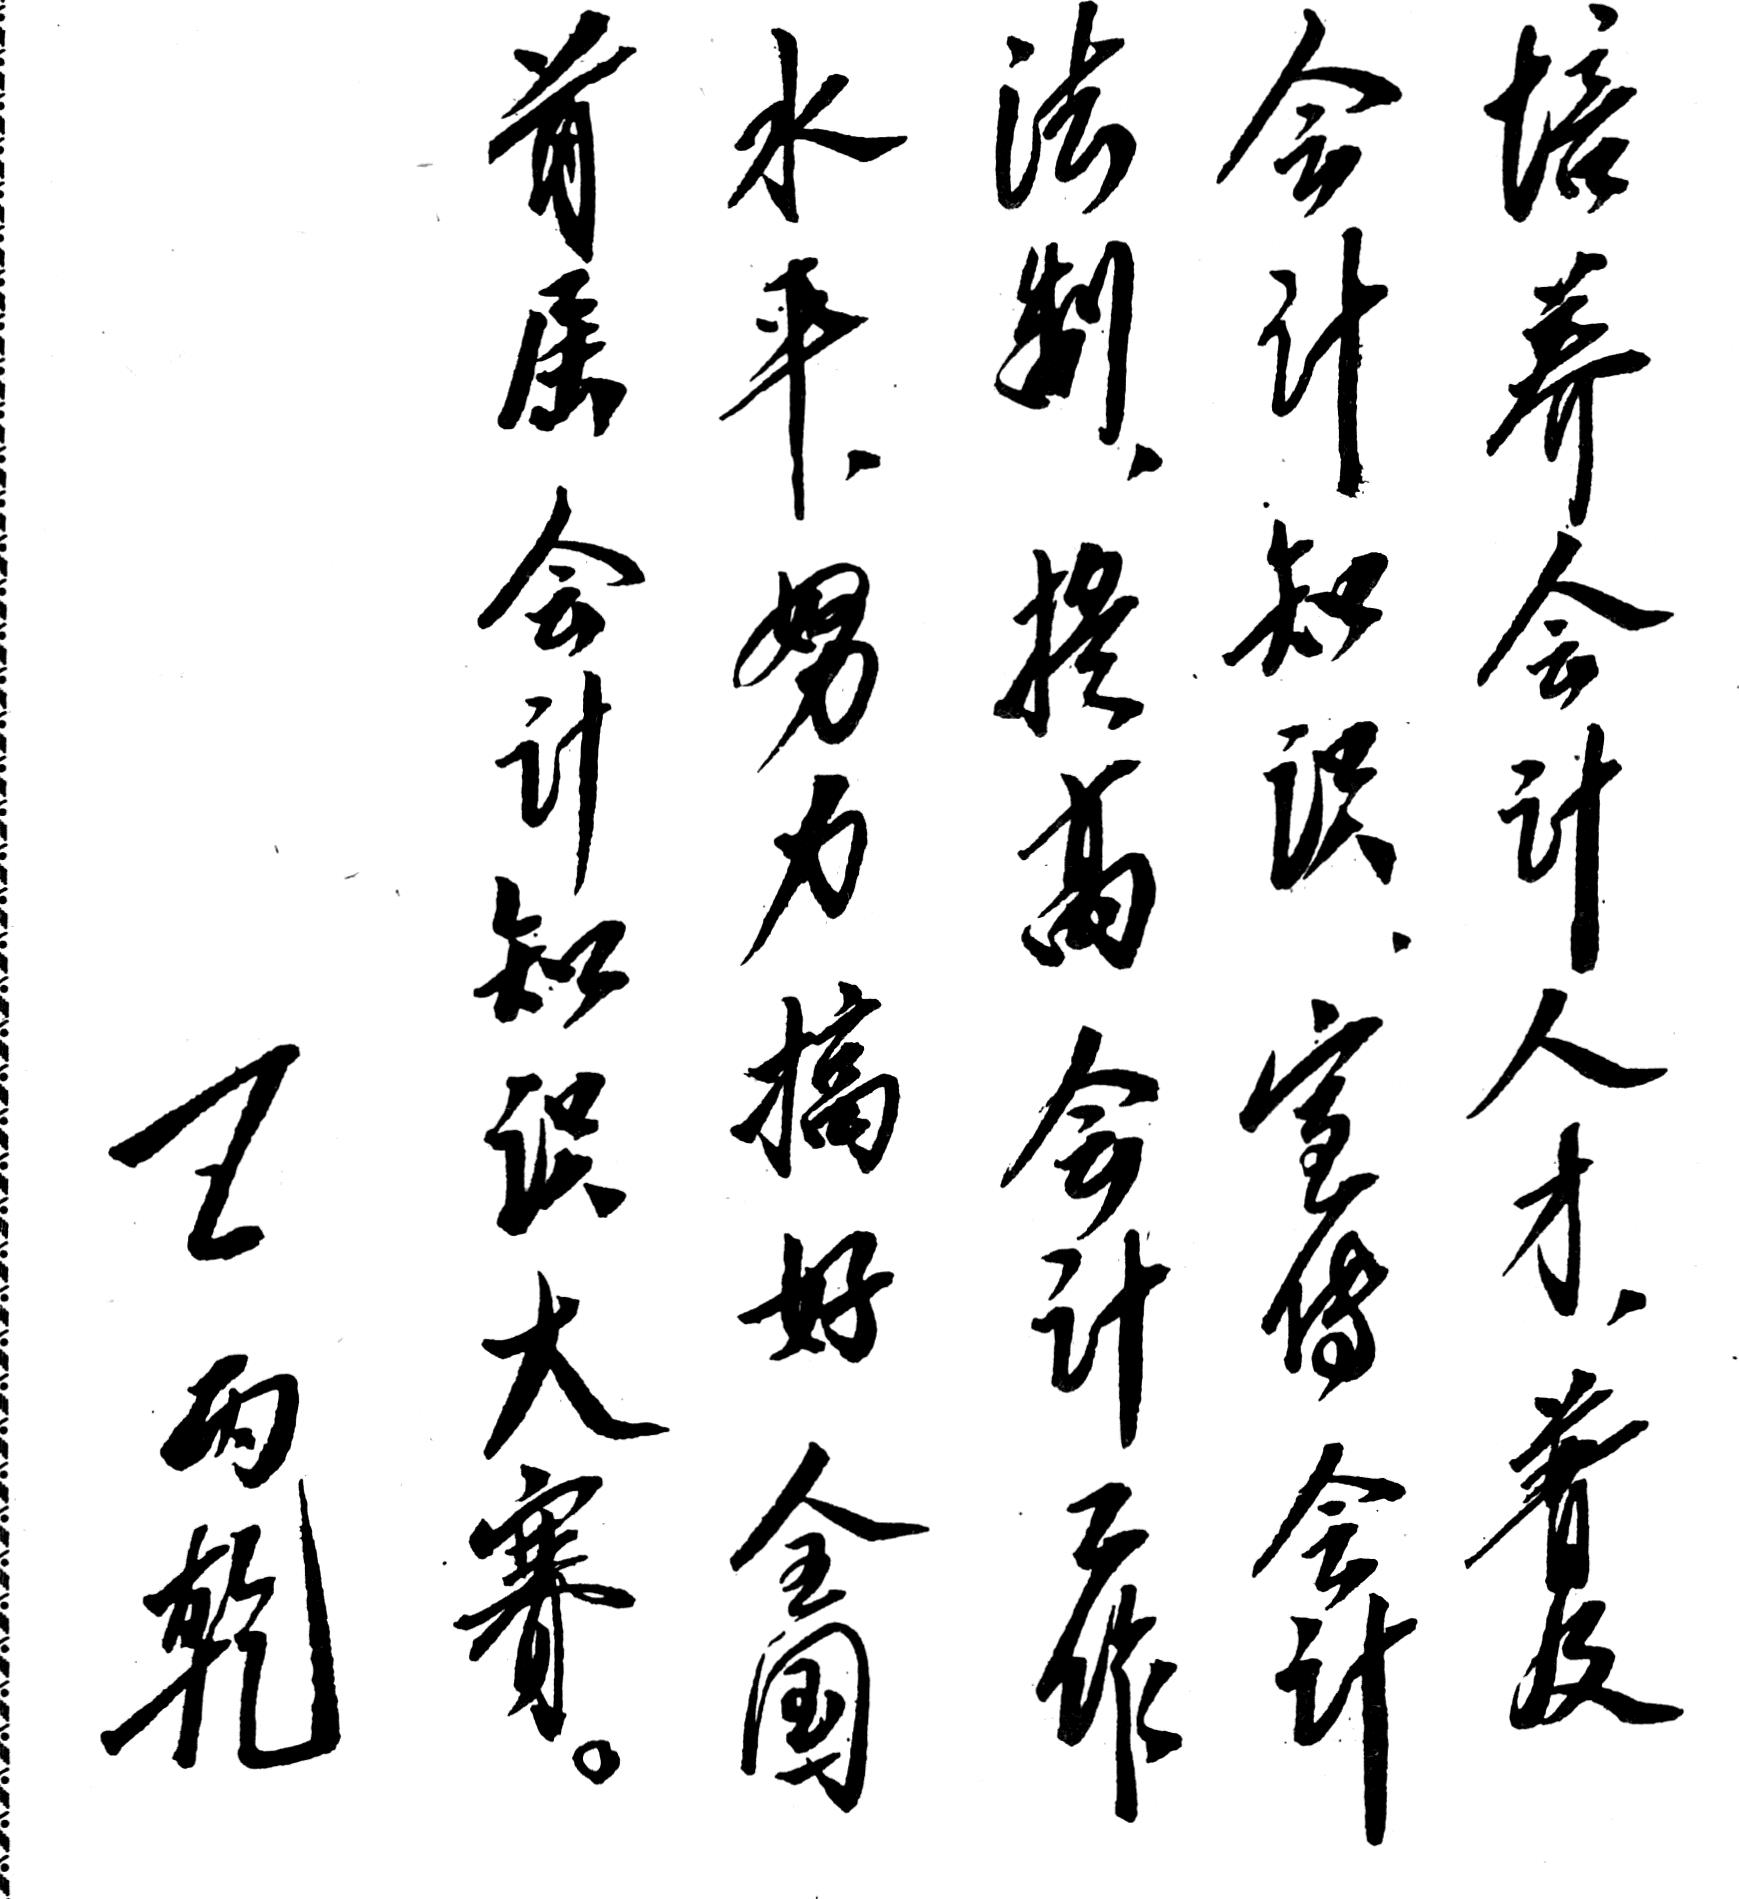 培养会计人才、普及
会计知识、宣传会计
法制、提高会计工作
水平、努力搞好全国
首届会计知识大赛。
王丙乾